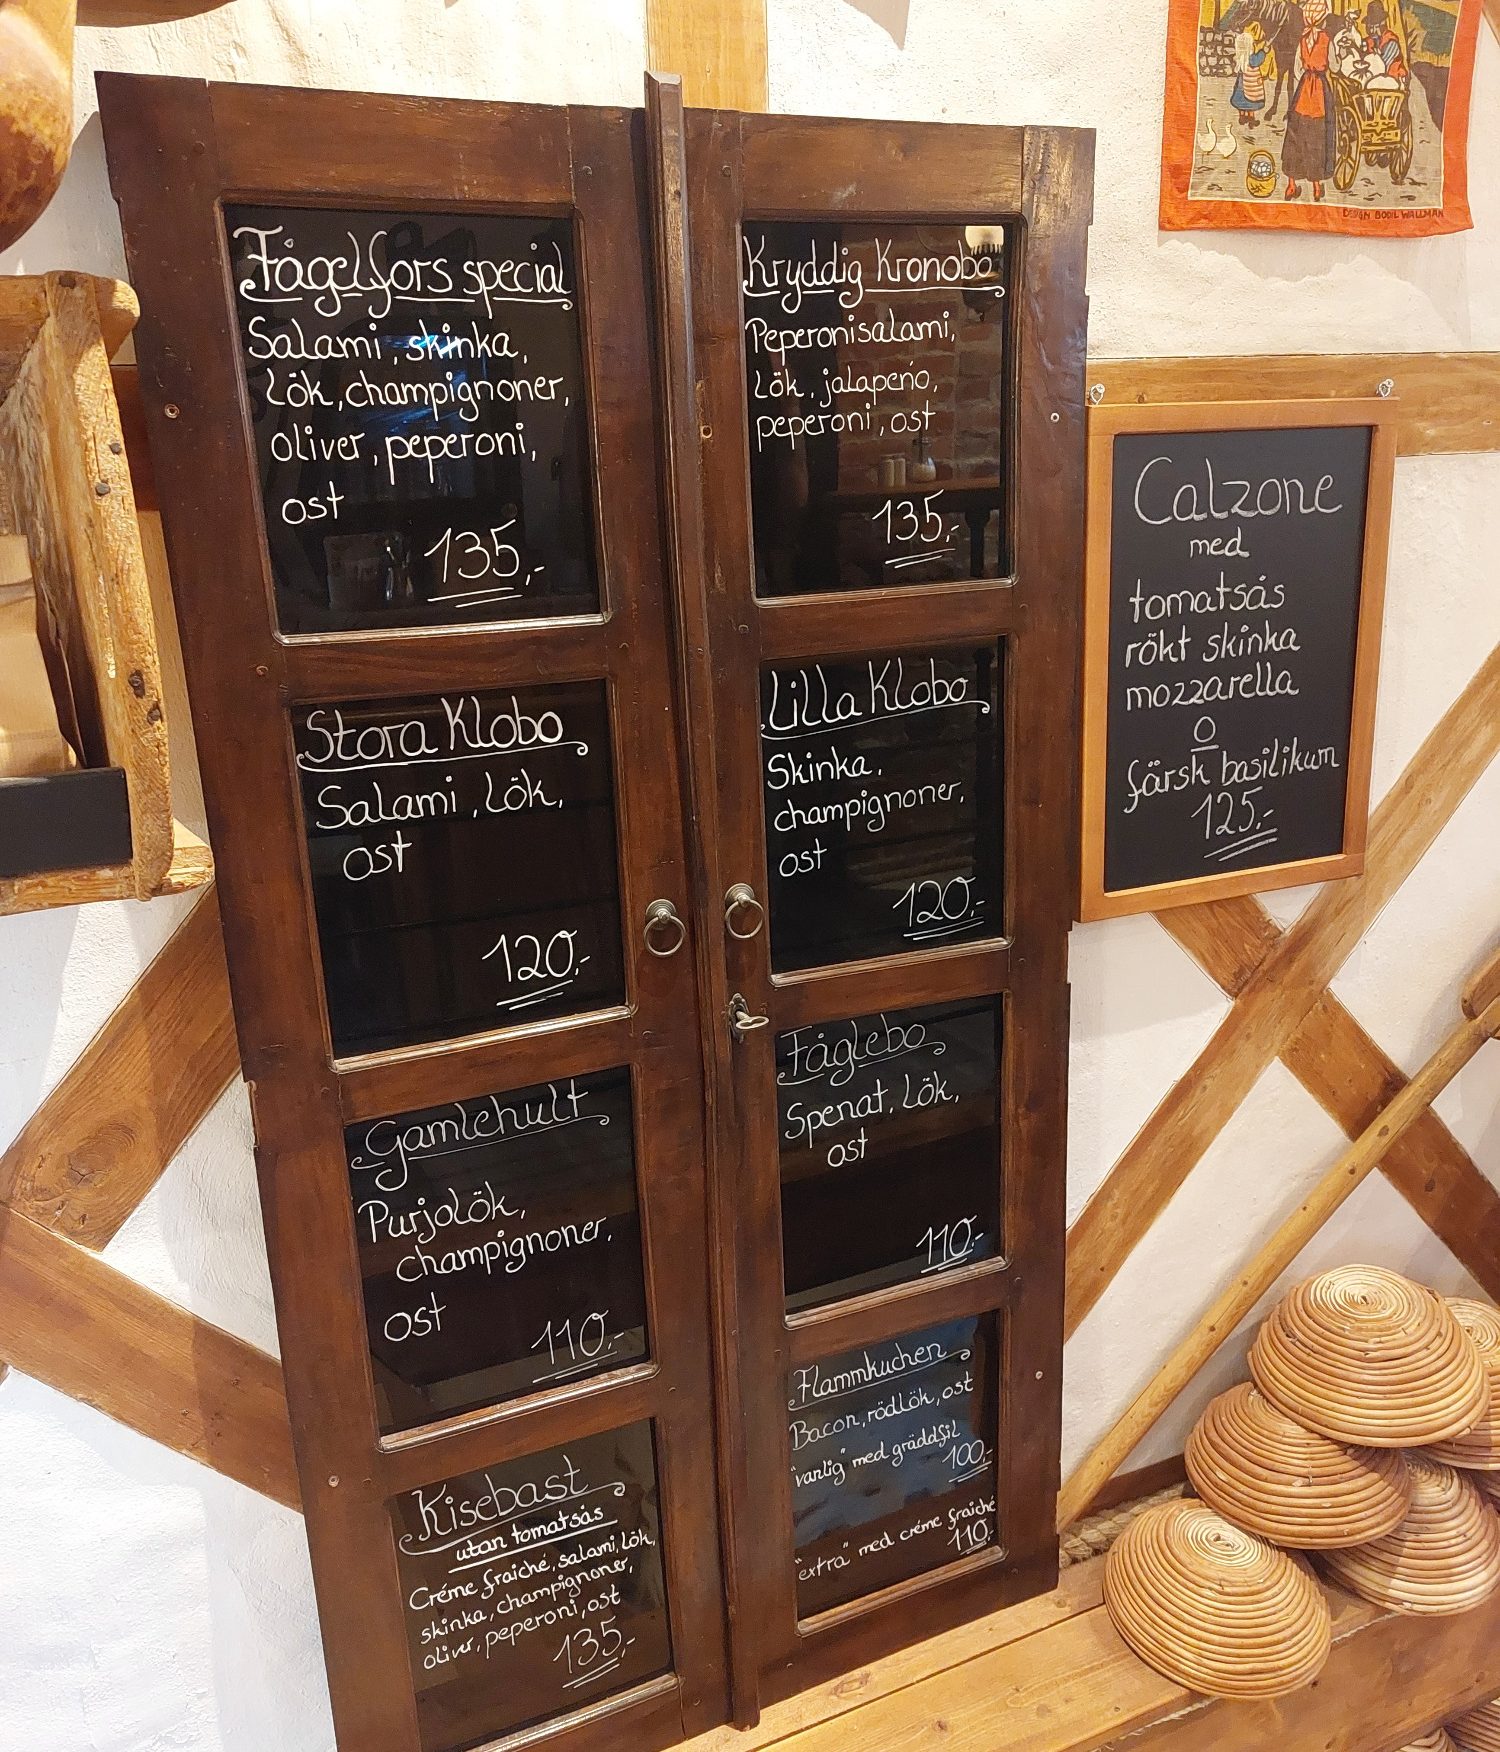 Fågelfors special
Salami, skinka,
lök, champignoner,
oliver, peperoni,
ost
135,-
Stora Klobo
Salami, lök,
ost
120,-
Gamlehult
Purjolök,
champignoner,
ost
110,-
Kisebast
utan tomatsås
Créme fraiché, salami, lök,
skinka, champignoner,
oliver, peperoni, ost
135,-
Kryddig Kronobo
Peperonisalami,
lök, jalapeńo,
peperoni, ost
135,-
Lilla Klobo
Skinka,
champignoner,
ost
120,-
Fåglebo
Spenat, lök,
ost
110,-
Flammkuchen
Bacon, rödlök, ost
"vanlig" med gräddfil
100,-
"extra" med créme fraiché
110,-
Calzone
med
tomatsås
rökt skinka
mozzarella
o
färsk basilikum
125,-
DESIGN BODIL WALLMAN